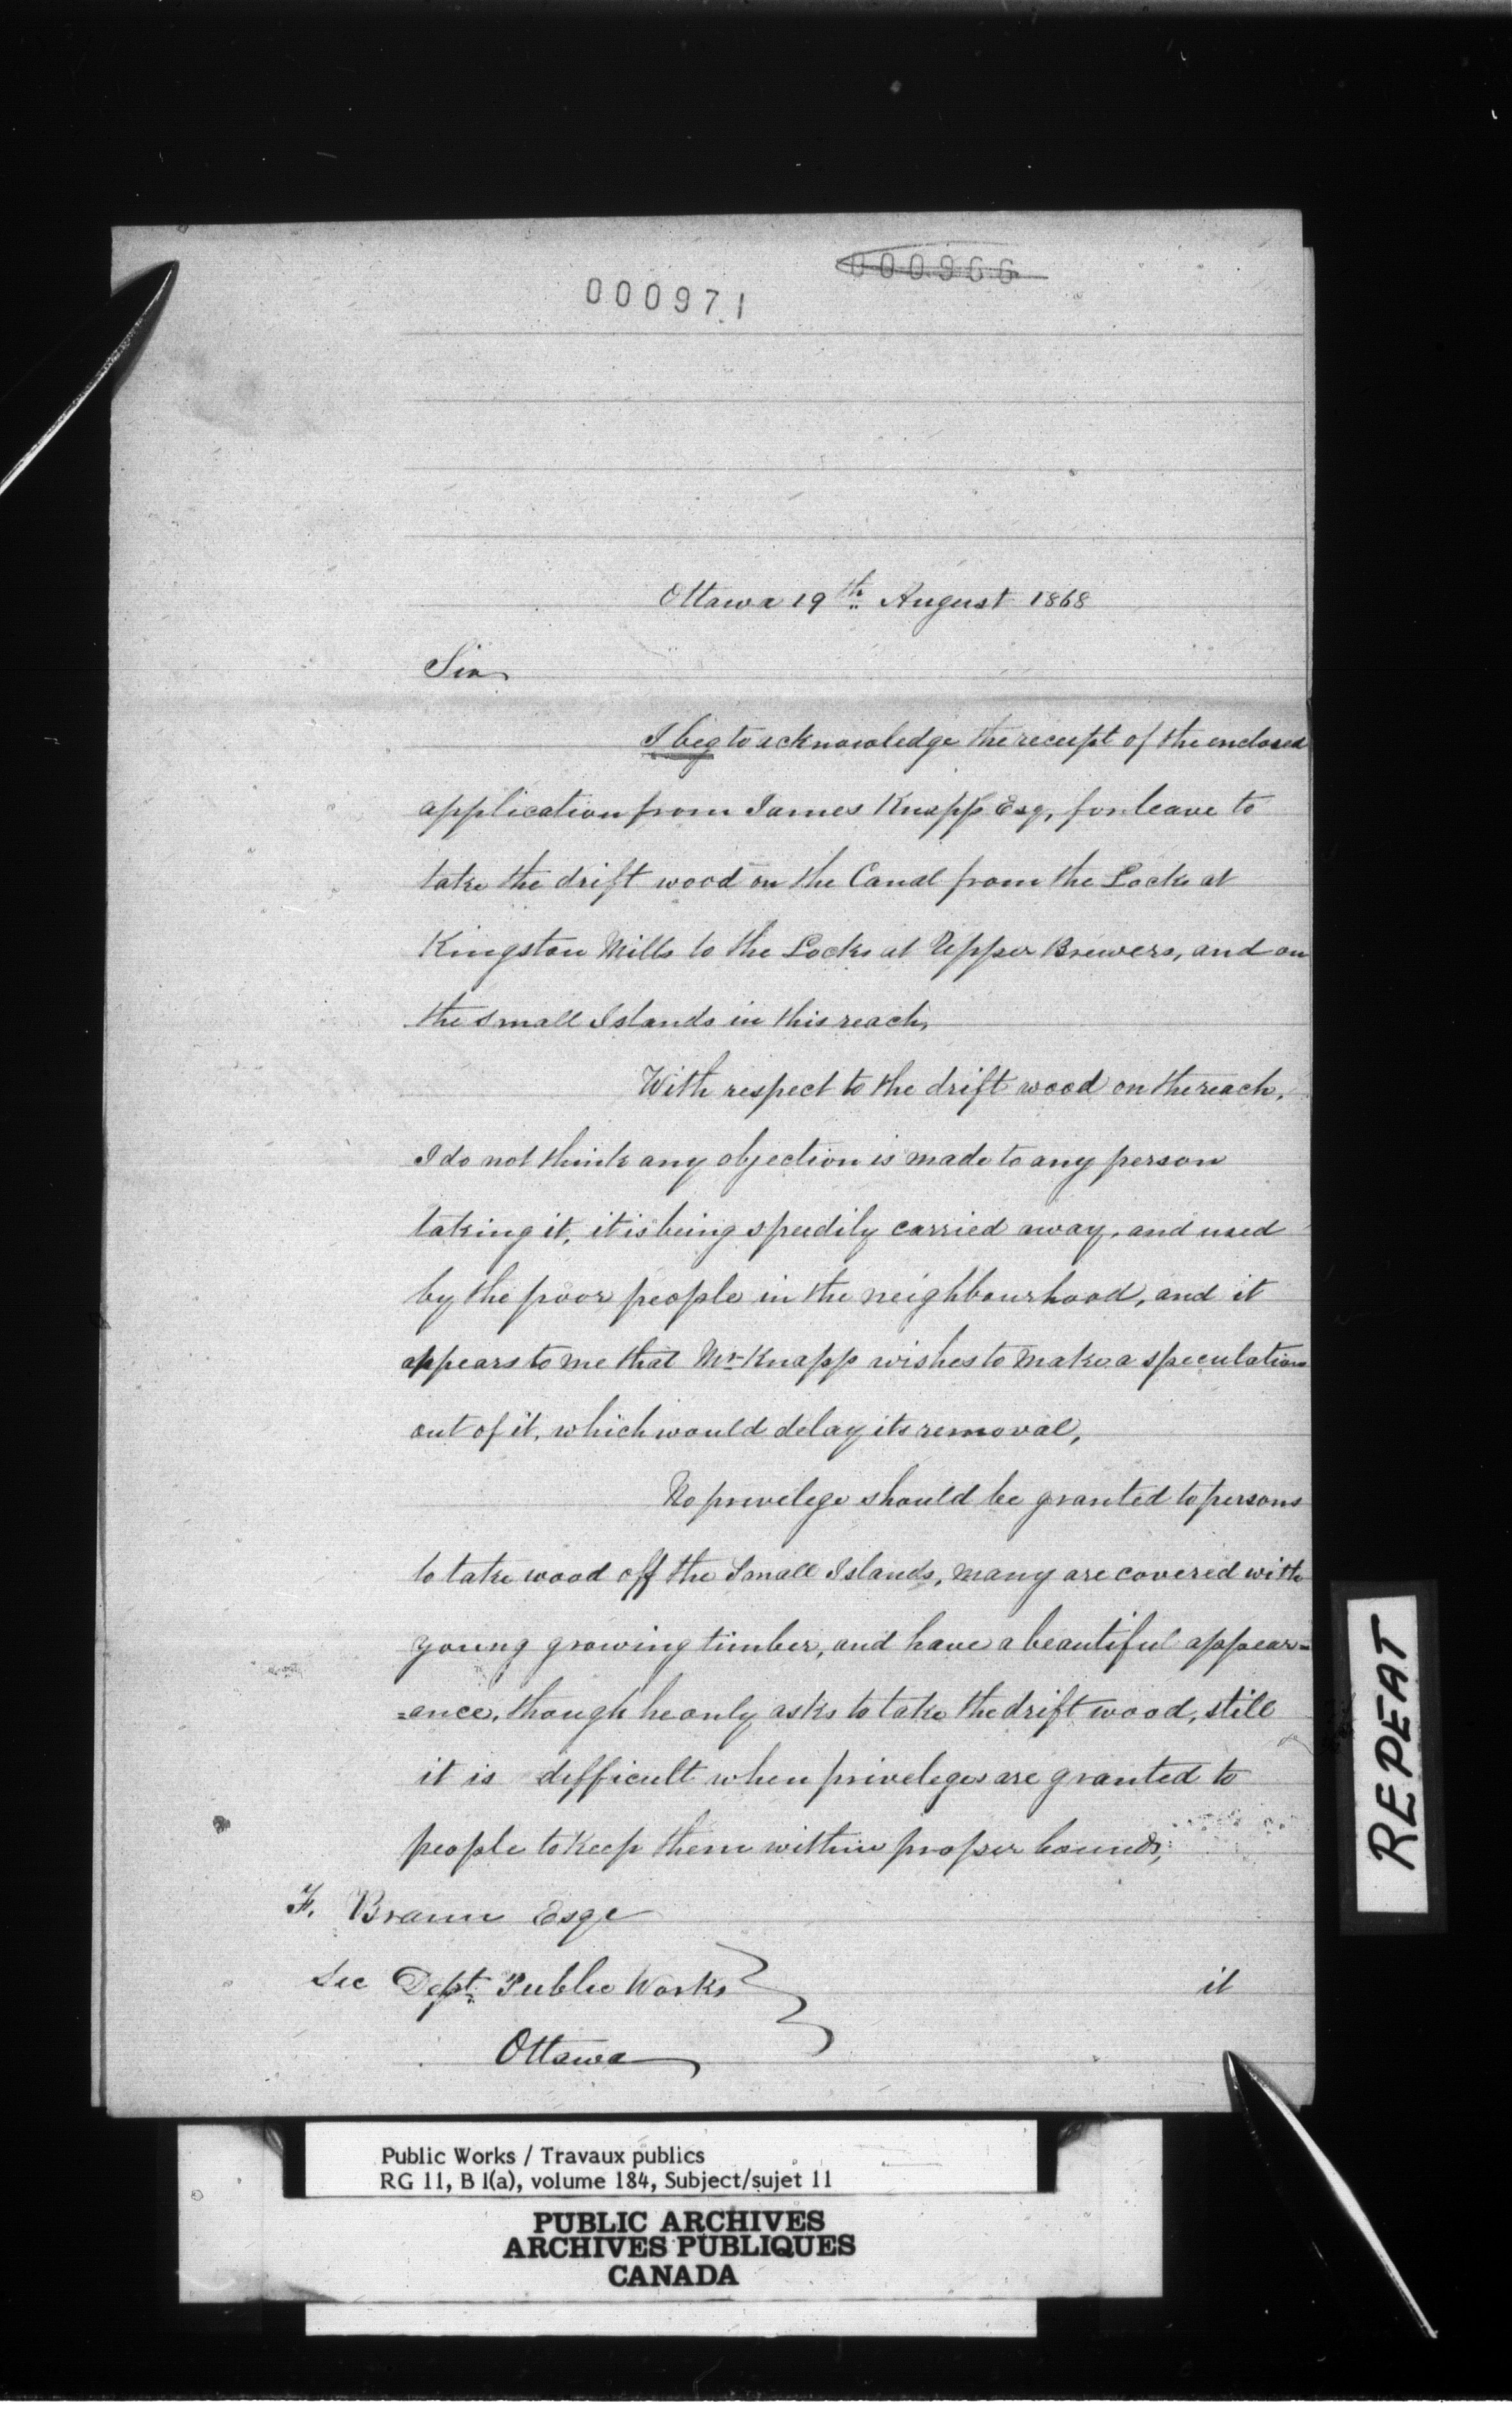 000966
000971
Ottawa 19th August 1868
Sir
I beg to acknowledge the receipt of the enclosed
application from James Knapp Esq, for leave to
take the drift wood on the Canal from the Locks at
Kingston Mills to the Locks at Upper Brewers, and on
the small Islands in this reach,
With respect to the drift wood on the reach,
I do not think any objection is made to any person
taking it, it is being speedily carried away, and used
by the poor people in the neighbourhood, and it
appears to me that Mr Knapp wishes to make a speculation
out of it, which would delay its removal,
No privelege should be granted to persons
to take wood off the Small Islands, many are covered with
young growing timber, and have a beautiful appear=
=ance, though he only asks to take the drift wood, still
it is difficult when priveleges are granted to
people to keep them within proper bounds,
F. Braun Esqe
Sec Dept. Public Works
it
Ottawa
REPEAT
Public Works / Travaux publics
RG 11, B 1(a), volume 184, Subject/sujet 11
PUBLIC ARCHIVES
ARCHIVES PUBLIQUES
CANADA